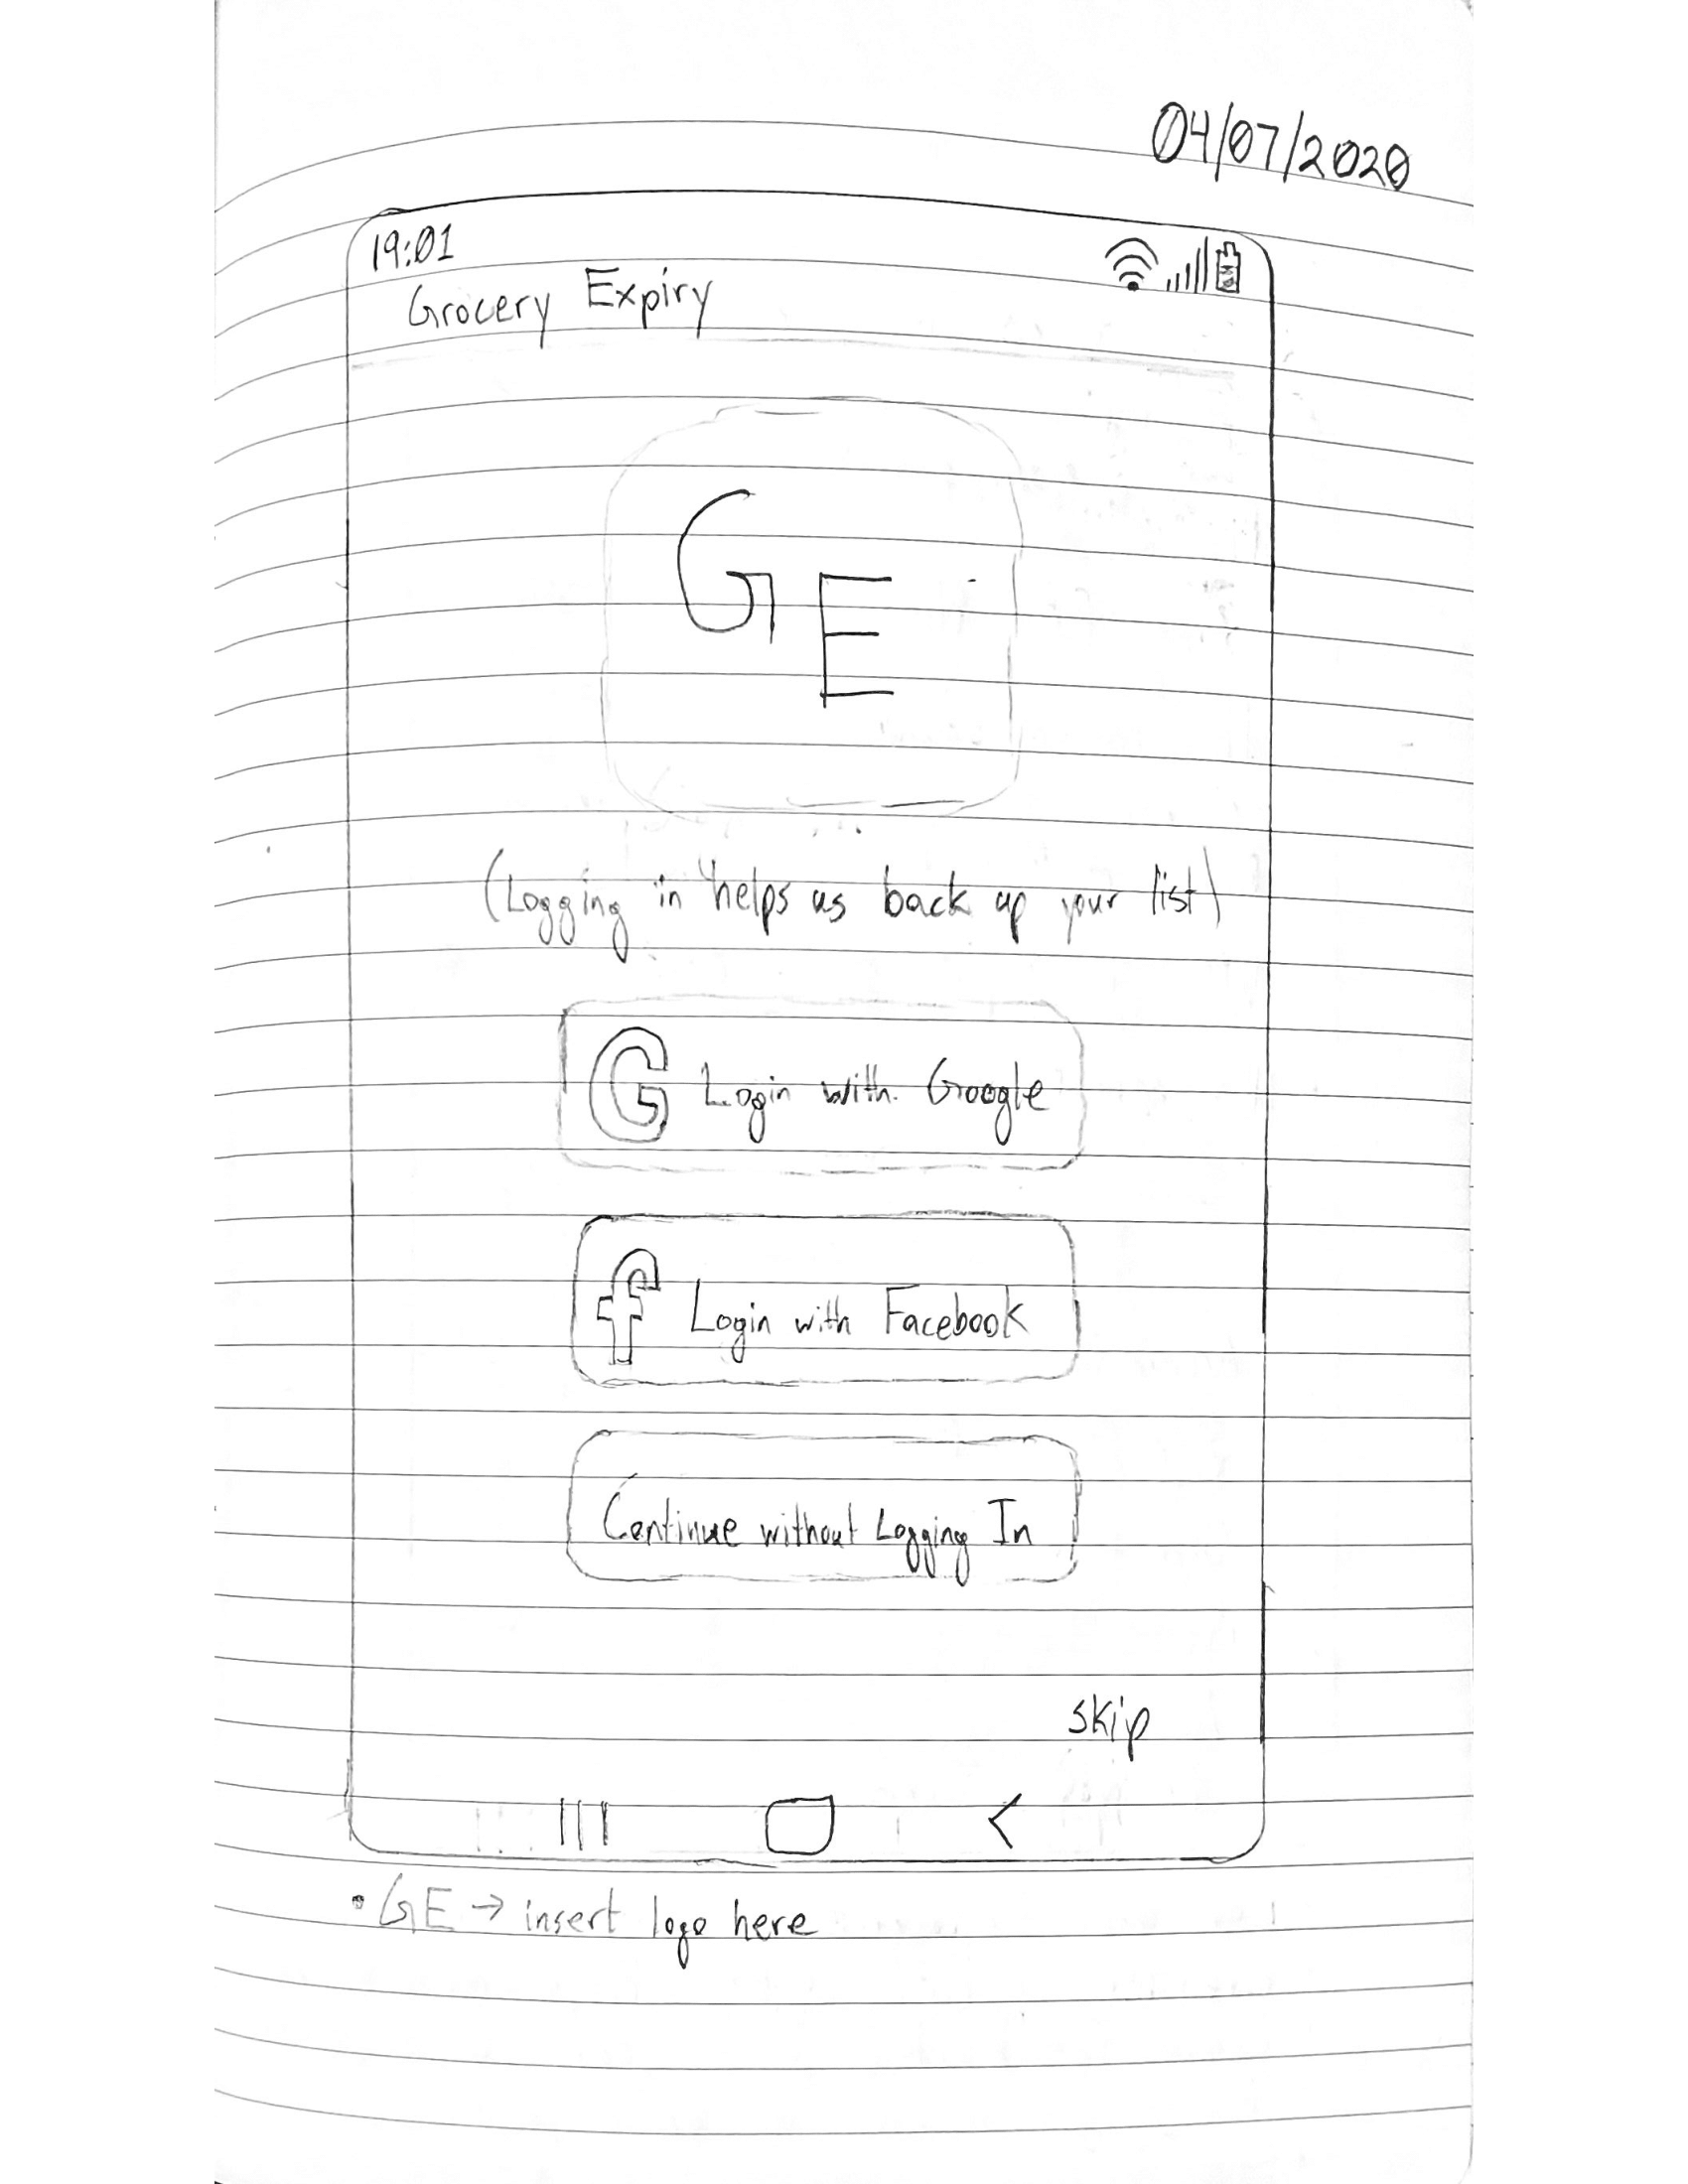 04/07/2020
19:01
Grocery Expiry
GE
(Logging in helps us back up your list)
G Login with Google
f Login with Facebook
Continue without Logging In
skip
• GE → insert logo here